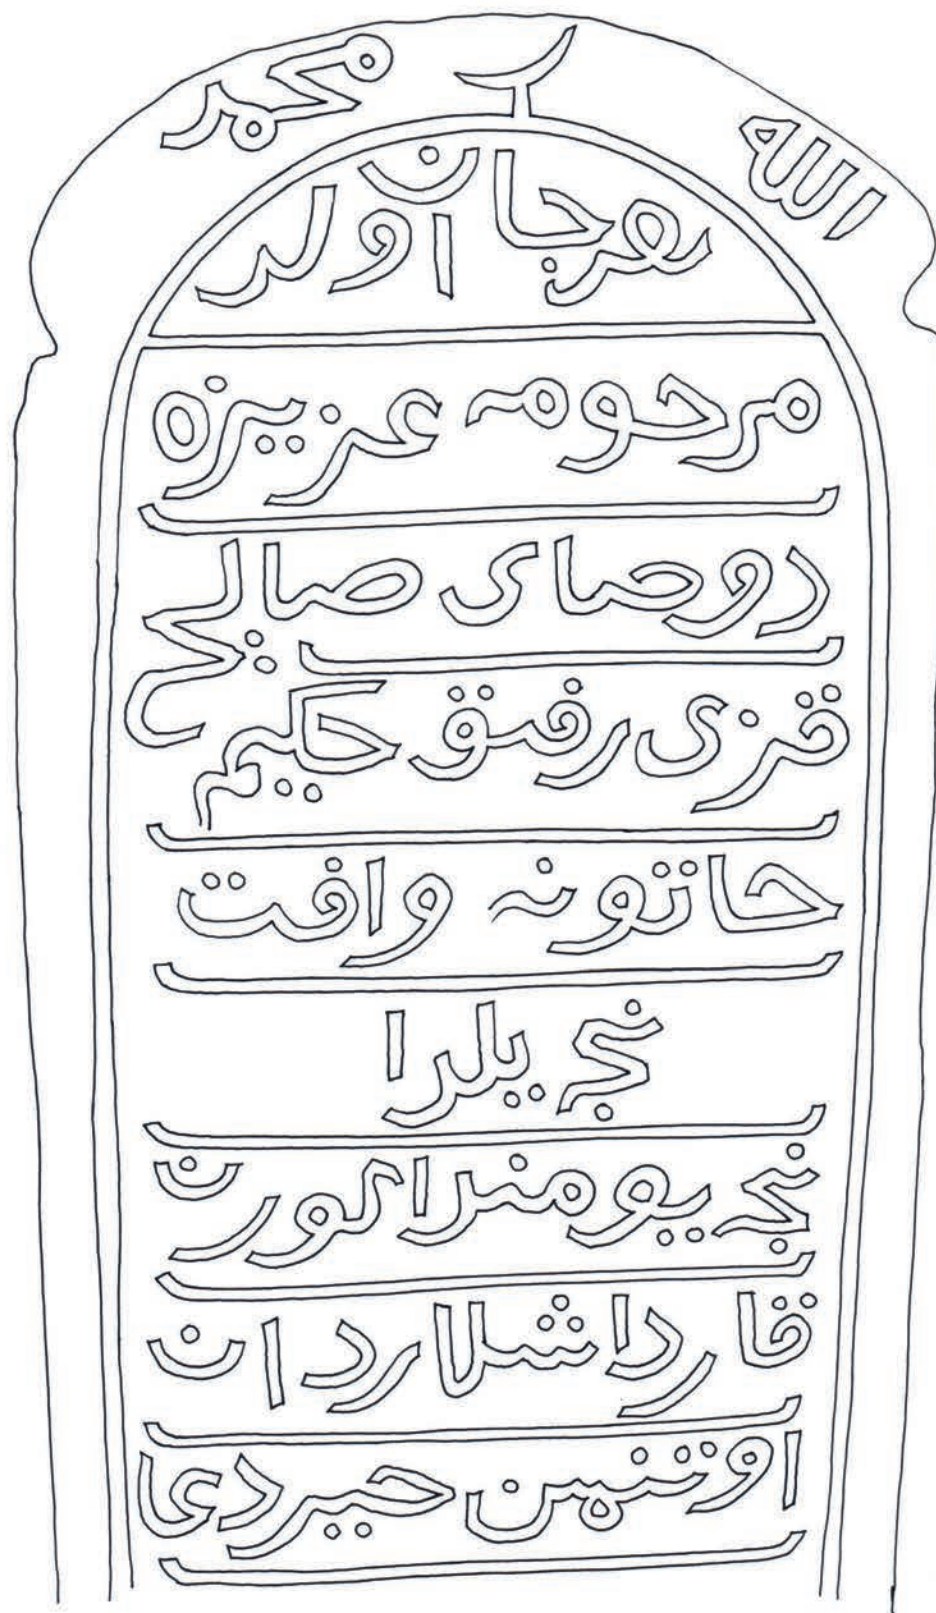 الله محمد
هرجان اولر
مرحومه عزيزه
دوصاى صاليح
قزى رفىق حكيم
حاتونه وافت
نج يلرا
نج يومنرا كورن
قارداشلاردان
اوتنمن حيردعا